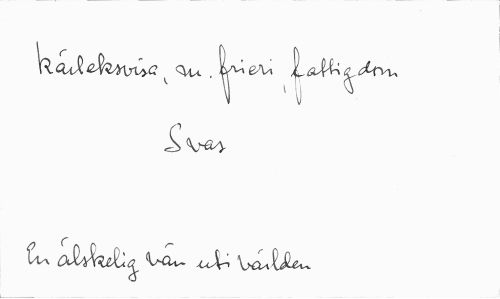 kärleksvisa, m. frieri, fattigdom
Svas
En älskelig vän uti världen